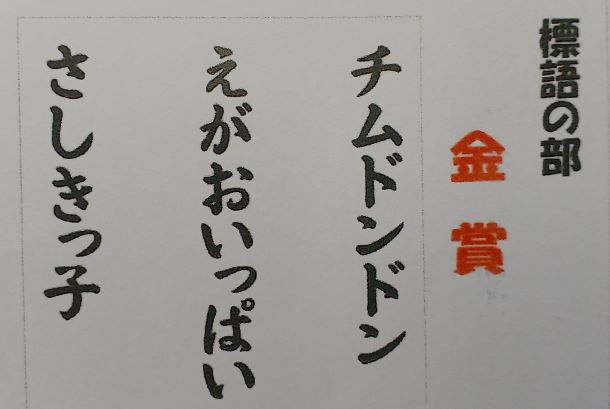 標語の部
金賞
チムドンドン
えがおいっぱい
さしきっ子